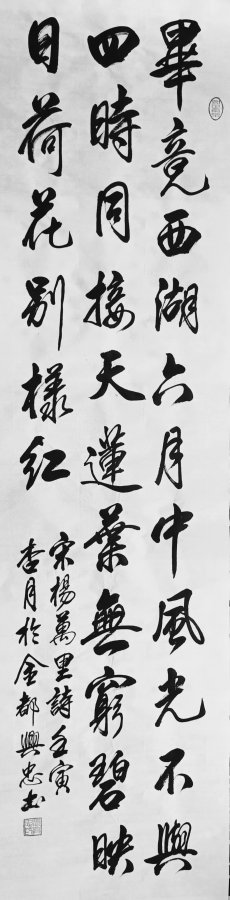 畢竟西湖六月中風光不與
四時同接天蓮葉無窮碧映
日荷花別樣紅
宋楊萬里詩壬寅
杏月於金都興忠书